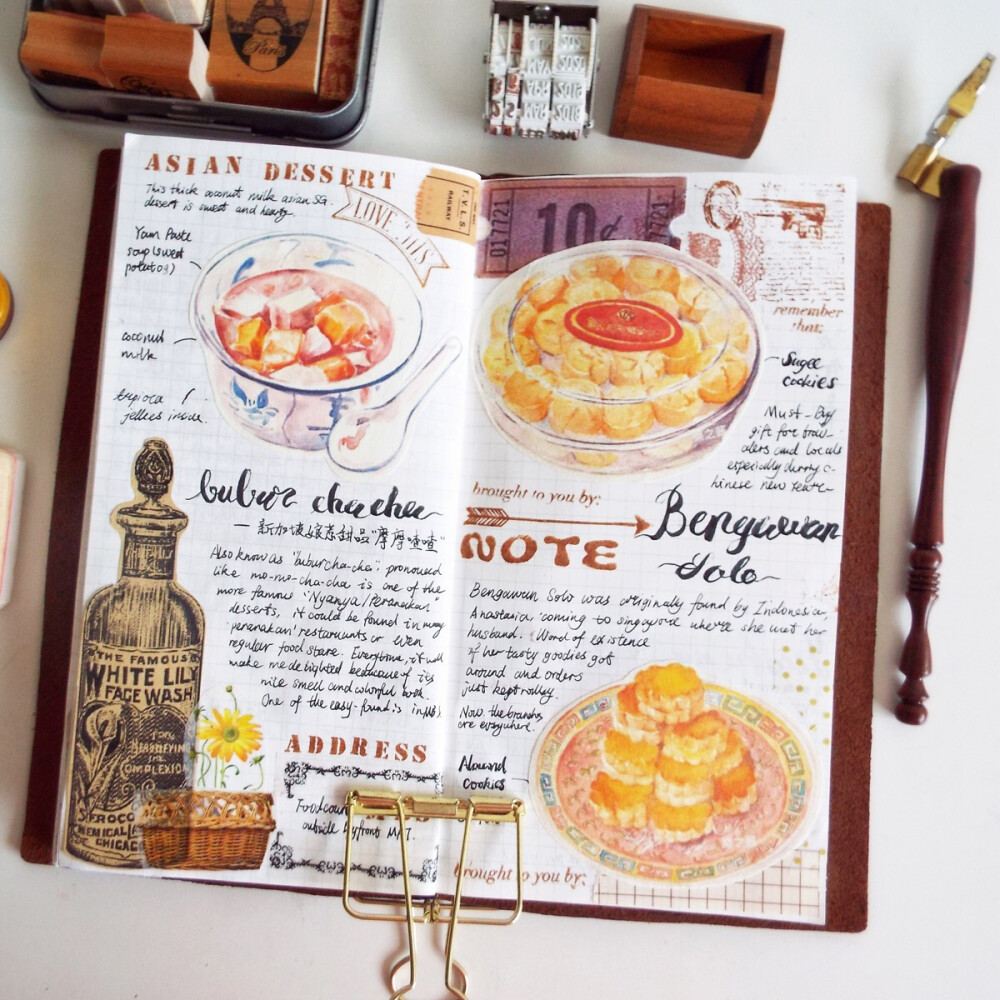 Paris
ASIAN DESSERT
This thick coconut milk asian
dessert is sweet and hearty.
LOVE THIS
T.V.L.S.
RAILWAY
Yam Paste
soup (sweet
potatos)
coconut
milk
tapioca
jellies inside.
bubur chacha
— 新加坡娘惹甜品"摩摩喳喳"
Also know as "buburcha-cha": pronouced
like mo-mo-cha-cha is one of the
more famous "Nyanya/Peranakan"
desserts, it could be found in many
peranakan restaurants or even
regular food store. Everytime, it will
make me delighted beacause of its
nice smell and colorful
One of the easy-found is in
THE FAMOUS
WHITE LILY
FACE WASH
FOR
BEAUTIFYING
THE
COMPLEXION
CHEMICAL LA
CHICAGO
ADDRESS
Foodcourt
outside Bayfront MRT.
017721
10¢
017721
remember
this:
Sugee
cookies
Must-Buy
gift for trav-
alers and locals
especially durry c-
hinese new year~
brought to you by:
NOTE
Bengawan
Solo~
Bengawan Solo was originally found by Indonesia,
Anastasia coming to singapore where she met her
husband. Word of existence
of her tasty goodies got
around and orders
just kept rolley.
Now, the branchs
are everywhere.
Almond
cookies
brought to you by: